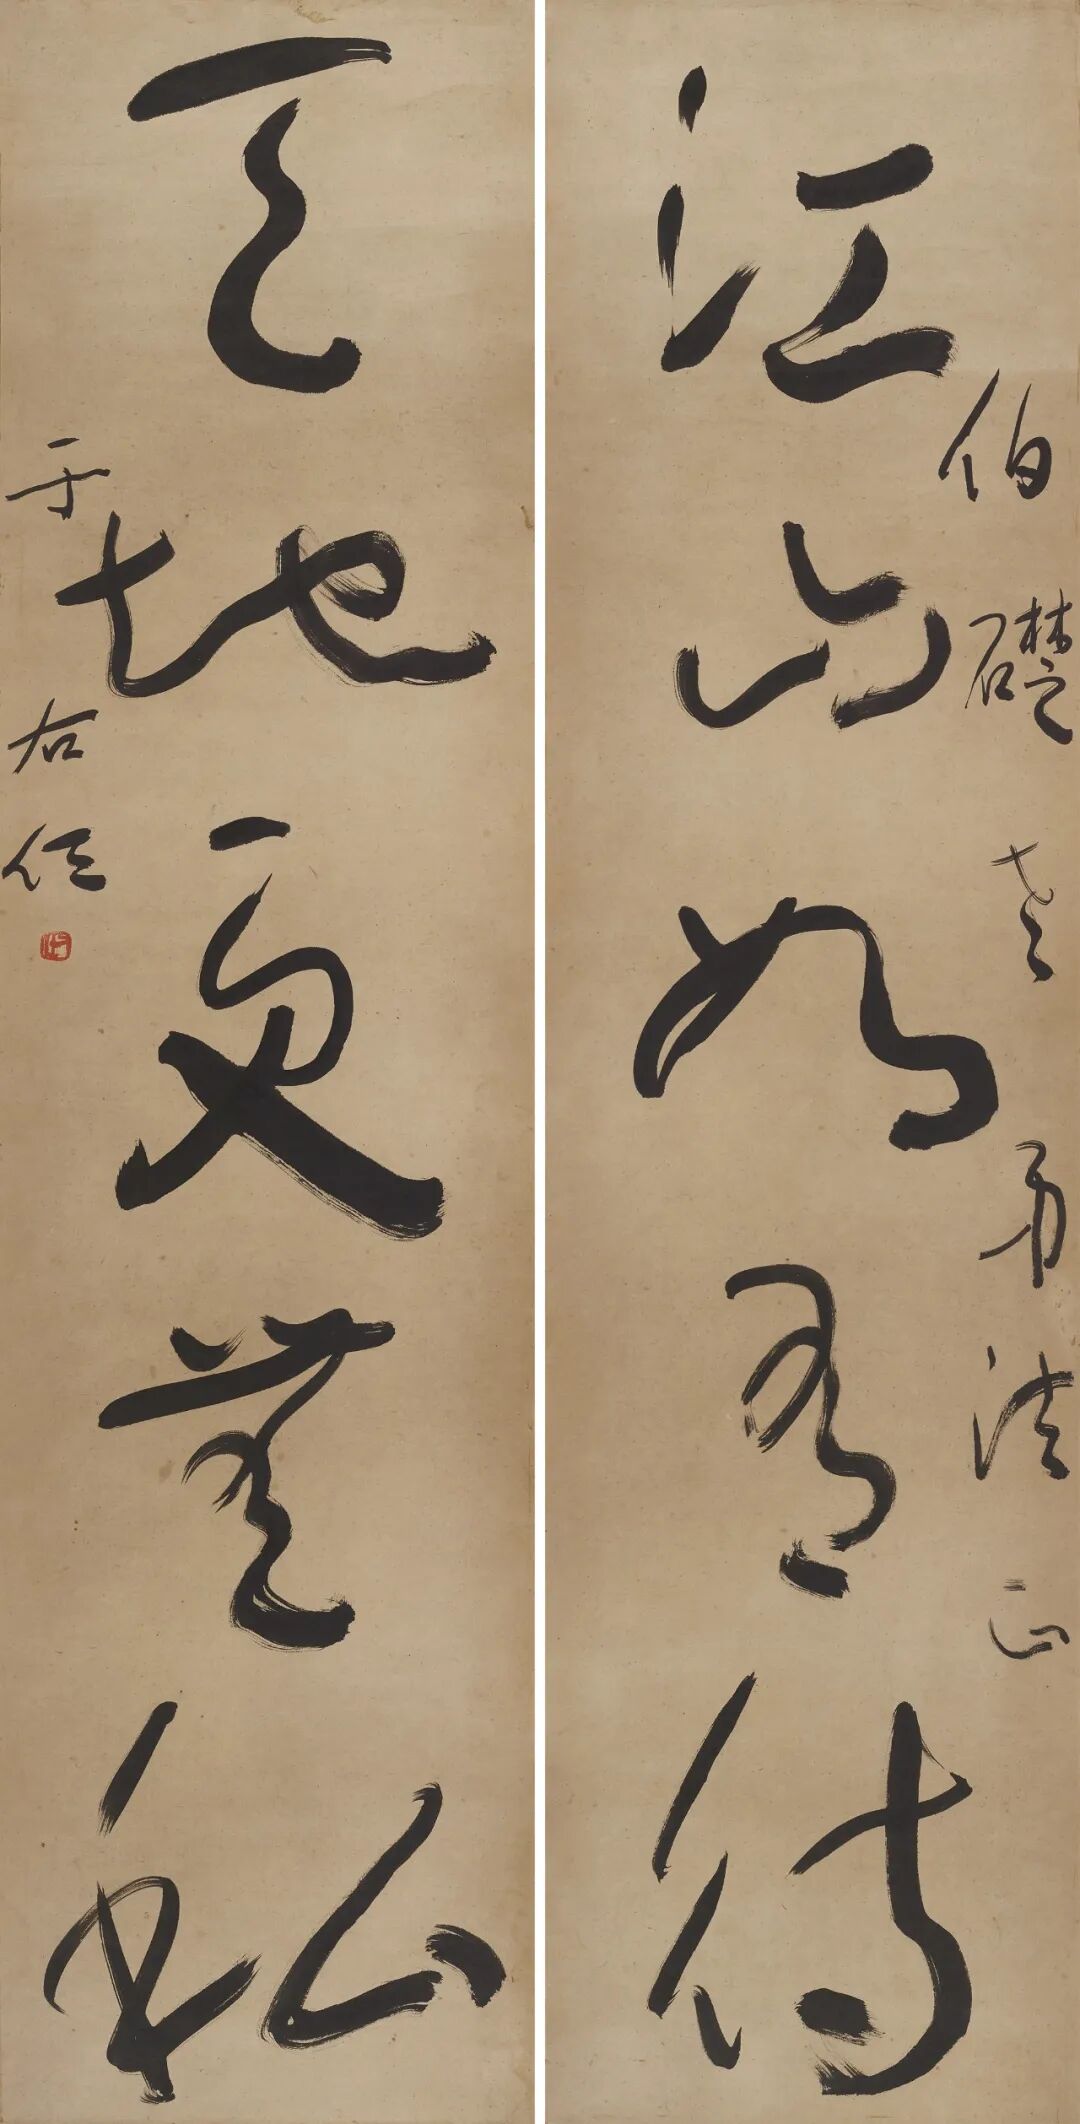 伯礎老弟法正
江山如有待
天地更無私
于右任